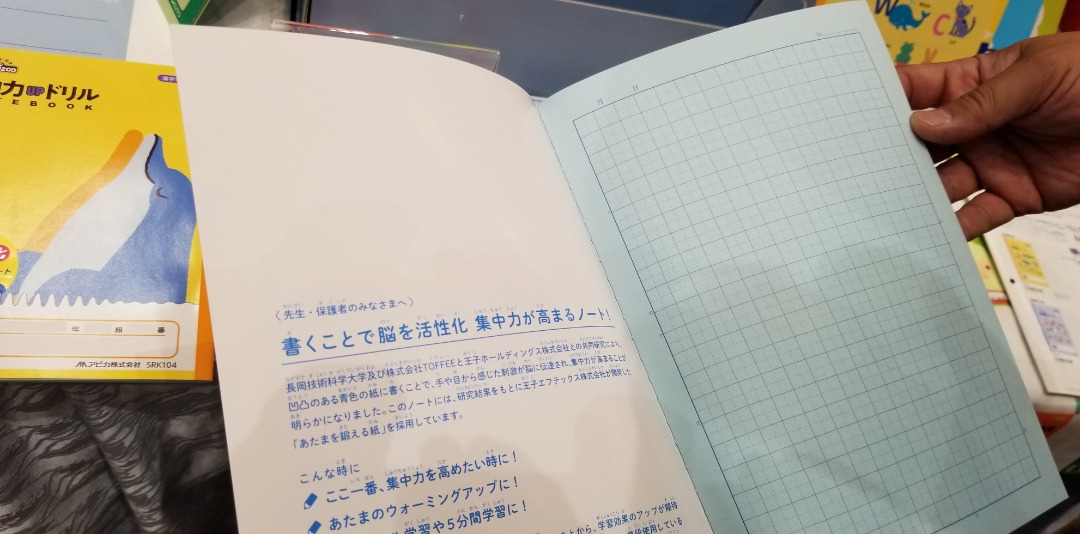 ドリル
UP
年 組 番
アピカ株式会社 SRK104
W C
〈先生・保護者のみなさまへ〉
書くことで脳を活性化 集中力が高まるノート!
長岡技術科学大学及び株式会社TOFFEEと王子ホールディングス株式会社との共同研究により、
凹凸のある青色の紙に書くことで、手や目から感じた刺激が脳に伝達され、集中力が高まることが
明らかになりました。このノートには、研究結果をもとに王子エフテックス株式会社が開発した
「あたまを鍛える紙」を採用しています。
こんな時に
ここ一番、集中力を高めたい時に!
あたまのウォーミングアップに!
学習や5分間学習に!
ことから、学習効果のアップが期待
使用している
月 日